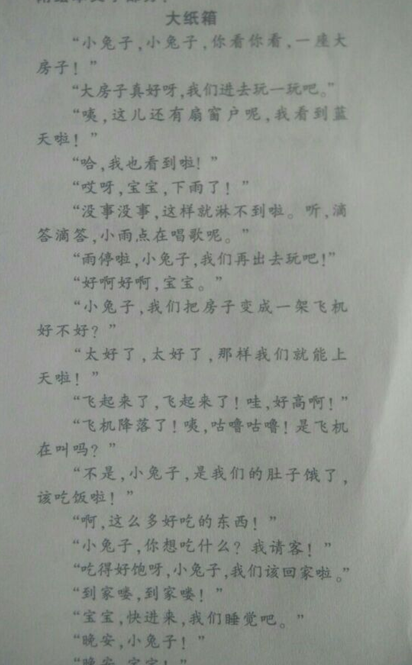 大纸箱
“小兔子,小兔子,你看你看,一座大
房子!”
“大房子真好呀,我们进去玩一玩吧。”
“咦,这儿还有扇窗户呢,我看到蓝
天啦!”
“哈,我也看到啦!”
“哎呀,宝宝,下雨了!”
“没事没事,这样就淋不到啦。听,滴
答滴答,小雨点在唱歌呢。”
“雨停啦,小兔子,我们再出去玩吧!”
“好啊好啊,宝宝。”
“小兔子,我们把房子变成一架飞机
好不好?”
“太好了,太好了,那样我们就能上
天啦!”
“飞起来了,飞起来了!哇,好高啊!”
“飞机降落了!咦,咕噜咕噜!是飞机
在叫吗?”
“不是,小兔子,是我们的肚子饿了,
该吃饭啦!”
“啊,这么多好吃的东西!”
“小兔子,你想吃什么?我请客!”
“吃得好饱呀,小兔子,我们该回家啦。”
“到家喽,到家喽!”
“宝宝,快进来,我们睡觉吧。”
“晚安,小兔子!”
“晚安,宝宝!”